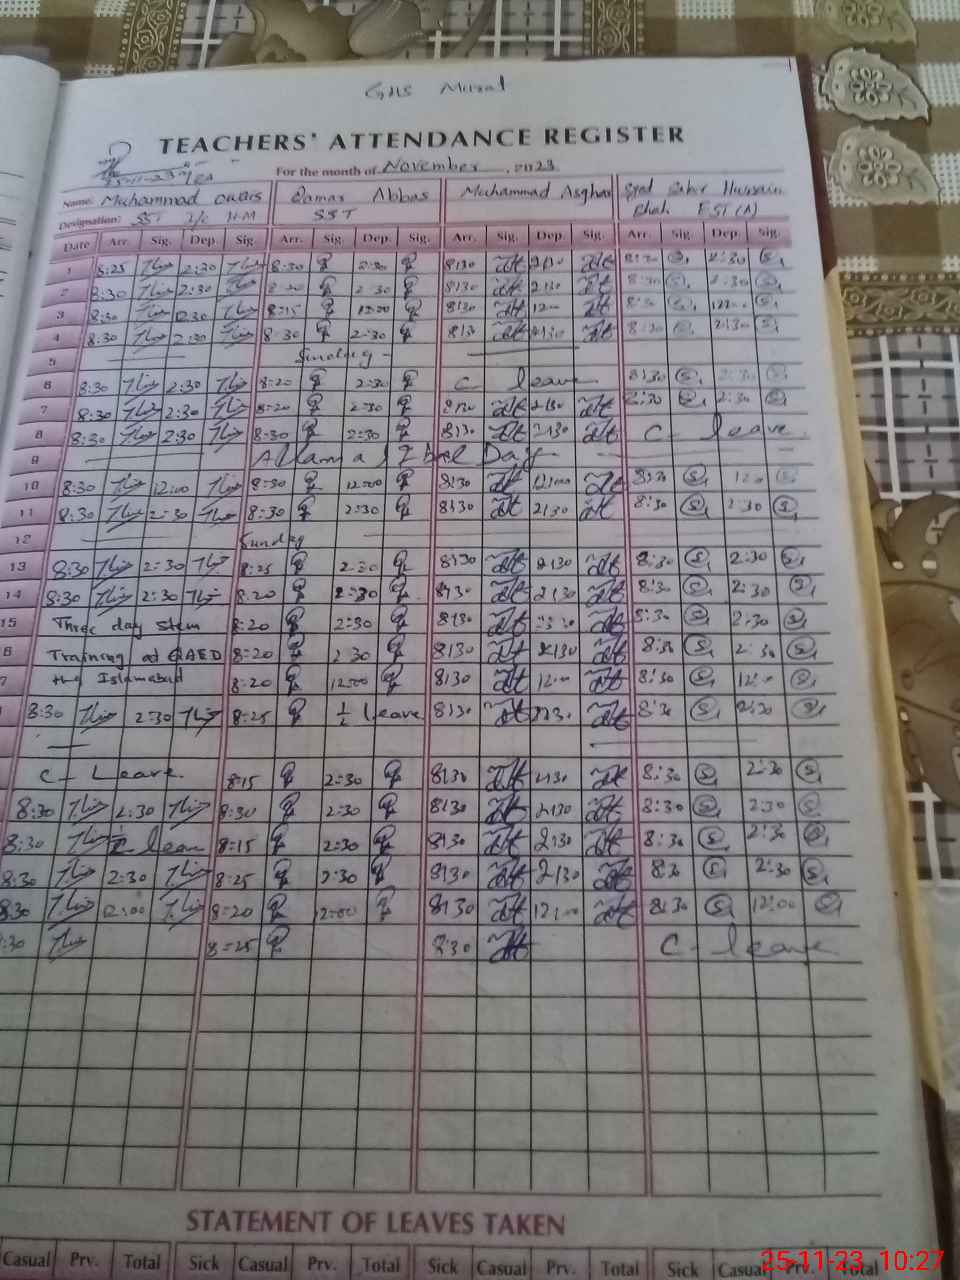 GHS
TEACHERS' ATTENDANCE REGISTER
For the month of November, 2023
Name: Muhammad Qamar Abbas Muhammad Asghar Syed Hussain
Designation: SST I/C H-M SST Shah EST (A)
Date Arr. Sig. Dep. Sig. Arr. Sig. Dep. Sig. Arr. Sig. Dep. Sig. Arr. Sig. Dep. Sig.
1 8:25 2:30 8:30 2:30 8:30 2:30 8:30 2:30
2 8:30 2:30 8:20 2:30 8:30 2:30 8:30 2:30
3 8:30 12:30 8:15 12:00 8:30 12:00 8:30 12:00
4 8:30 2:30 8:30 2:30 8:30 2:30 8:30 2:30
5 Sunday
6 8:30 2:30 8:20 2:30 C leave 8:30 2:30
7 8:30 2:30 8:20 2:30 8:30 2:30 8:30 2:30
8 8:30 2:30 8:30 2:30 8:30 2:30 C- leave
9 Allama Iqbal Day
10 8:30 12:00 8:30 12:00 8:30 12:00 8:30 12:00
11 8:30 2:30 8:30 2:30 8:30 2:30 8:30 2:30
12 Sunday
13 8:30 2:30 8:25 2:30 8:30 2:30 8:30 2:30
14 8:30 2:30 8:20 2:30 8:30 2:30 8:30 2:30
15 Three day stem 8:20 2:30 8:30 2:30 8:30 2:30
6 Training at QAED 8:20 2:30 8:30 2:30 8:30 2:30
7 the Islamabad 8:20 12:00 8:30 12:00 8:30 12:00
8:30 2:30 8:25 1/2 leave 8:30 2:30 8:30 2:30
C- Leave 8:15 2:30 8:30 2:30 8:30 2:30
8:30 2:30 8:30 2:30 8:30 2:30 8:30 2:30
8:30 leave 8:15 2:30 8:30 2:30 8:30 2:30
8:30 2:30 8:25 2:30 8:30 2:30 8:30 2:30
8:30 12:00 8:20 12:00 8:30 12:00 8:30 12:00
:30 8:25 8:30 C- leave
STATEMENT OF LEAVES TAKEN
Casual Prv. Total Sick Casual Prv. Total Sick Casual Prv. Total Sick Casual Prv. Total
25-11-23 10:27